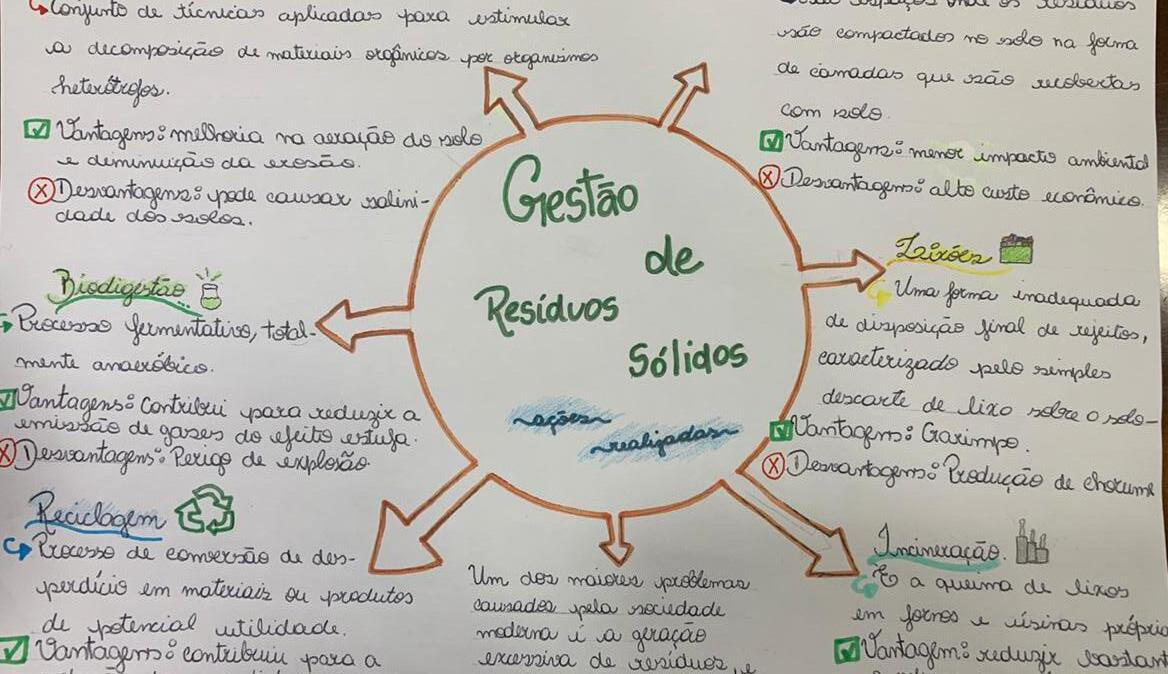 Conjunto de técnicas aplicadas para estimular
a decomposição de materiais orgânicos por organismos
heterótrofos.
Vantagens: melhoria na aeração do solo
e diminuição da erosão.
Desvantagens: pode causar salini-
dade dos solos.
Biodigestão
Processo fermentativo, total-
mente anaeróbico.
Vantagens: Contribui para reduzir a
emissão de gases do efeito estufa.
Desvantagens: Perigo de explosão.
Reciclagem
Processo de conversão de des-
perdício em materiais ou produtos
de potencial utilidade.
Vantagens: contribuiu para a
Gestão
de
Resíduos
Sólidos
ações
realizadas
Um dos maiores problemas
causados pela sociedade
moderna é a geração
excessiva de resíduos, e
os resíduos
são compactados no solo na forma
de camadas que são recobertas
com solo.
Vantagens: menor impacto ambiental
Desvantagens: alto custo econômico.
Lixões
Uma forma inadequada
de disposição final de rejeitos,
caracterizado pelo simples
descarte de lixo sobre o solo-
Vantagens: Garimpo.
Desvantagens: Produção de chorume
Incineração.
É a queima de lixos
em fornos e úsinas própria
Vantagem: reduzir bastant